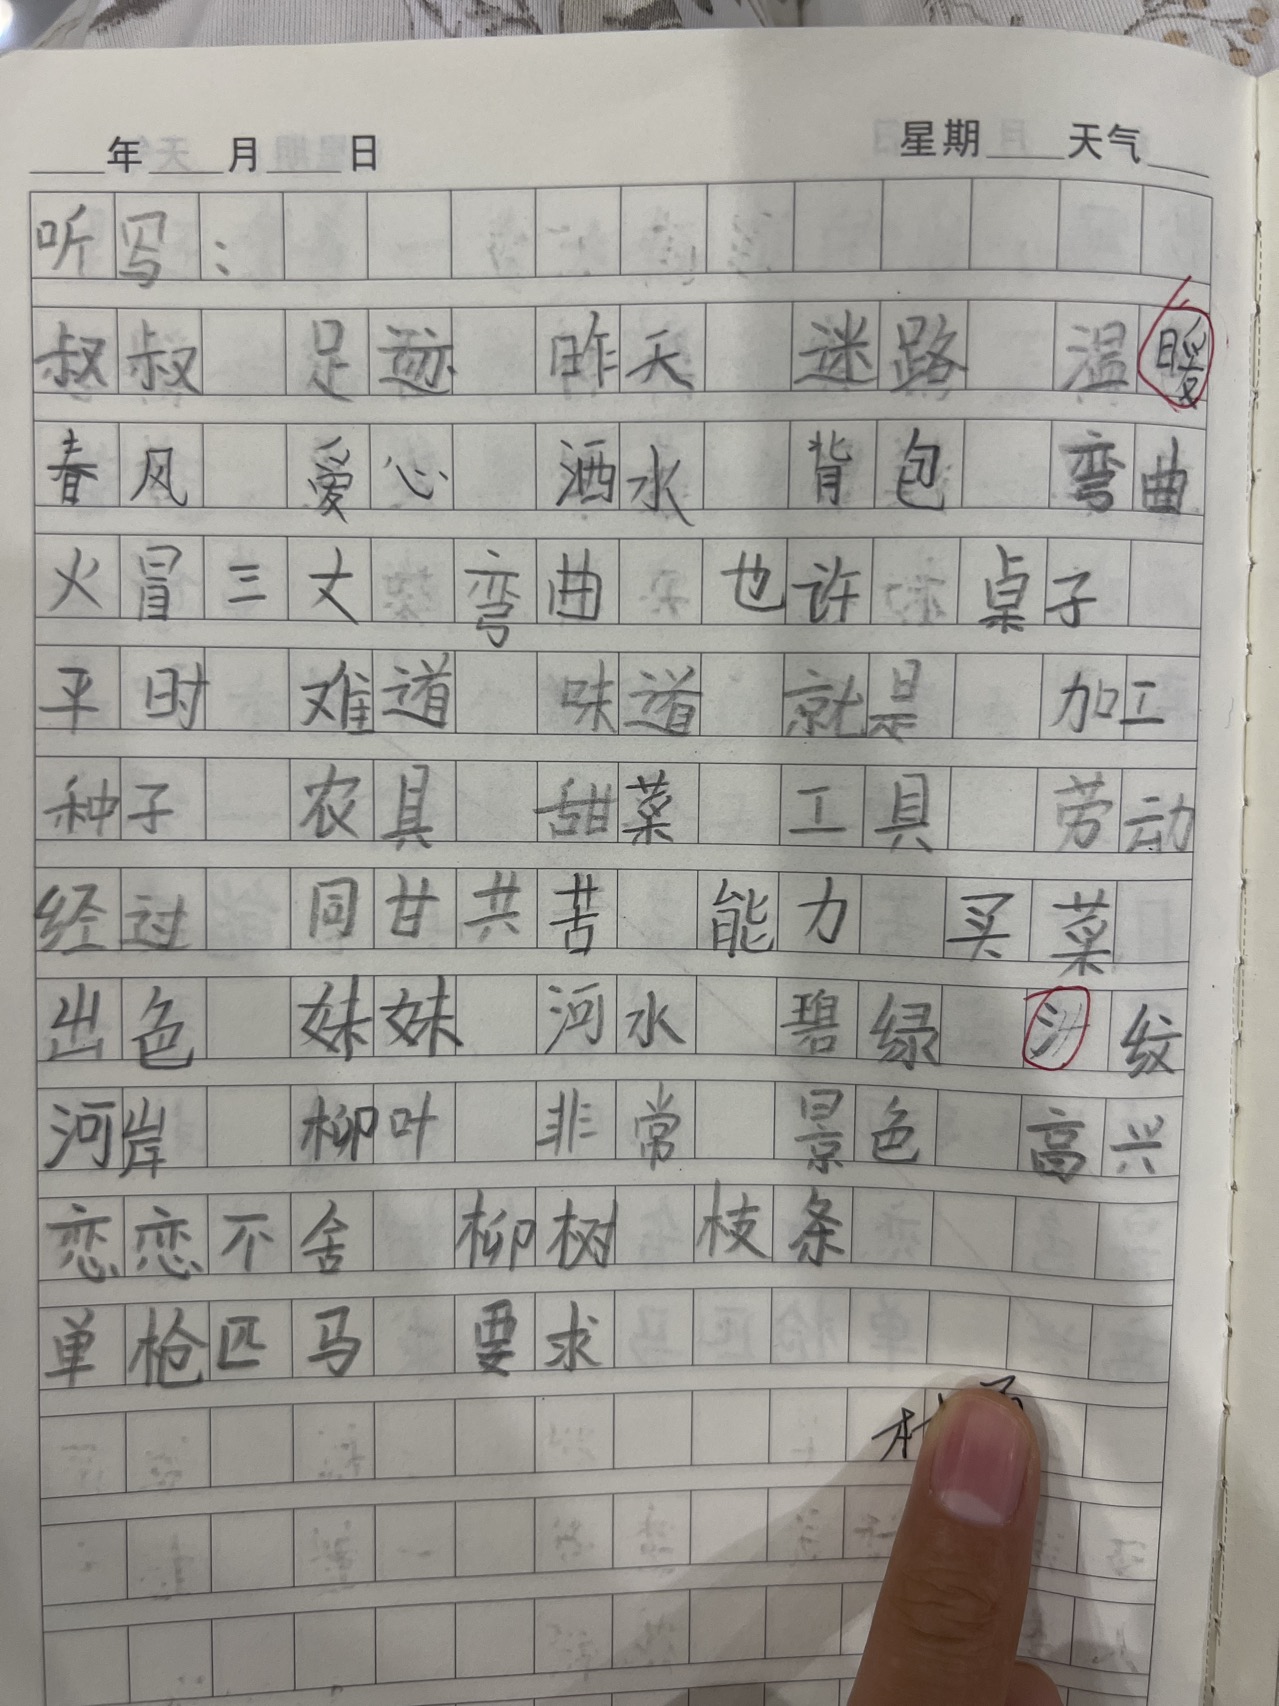 年 月 日 星期 天气
听写：
叔叔 足迹 昨天 迷路 温暖
春风 爱心 洒水 背包 弯曲
火冒三丈 弯曲 也许 桌子
平时 难道 味道 就是 加工
种子 农具 甜菜 工具 劳动
经过 同甘共苦 能力 买菜
出色 妹妹 河水 碧绿 纹
河岸 柳叶 非常 景色 高兴
恋恋不舍 柳树 枝条
单枪匹马 要求